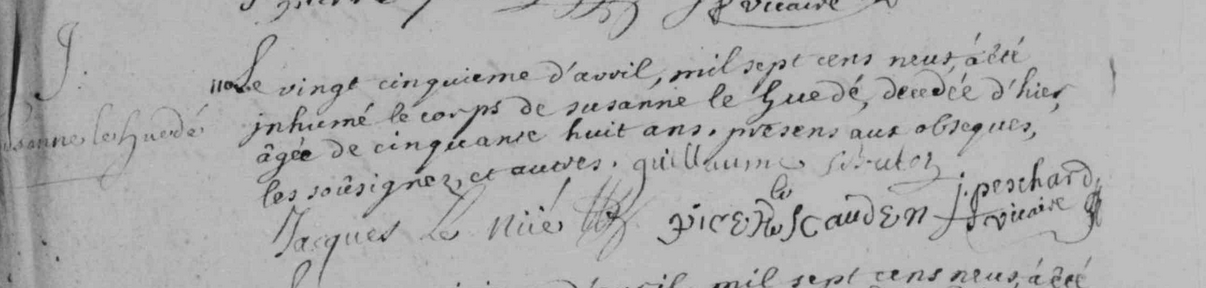 vicaire
J.
Le vingt cinquieme d'avril, mil sept cens neuf, á été
jnhumé le corps de susanne le huedé, decedée d'hier,
susanne le huedé
âgée de cinquante huit ans. présens aux obseques,
les soûsignez, et autres. guillaume
Jacques Le j. peschard
vicaire
d'avril, mil sept cens neuf, á été